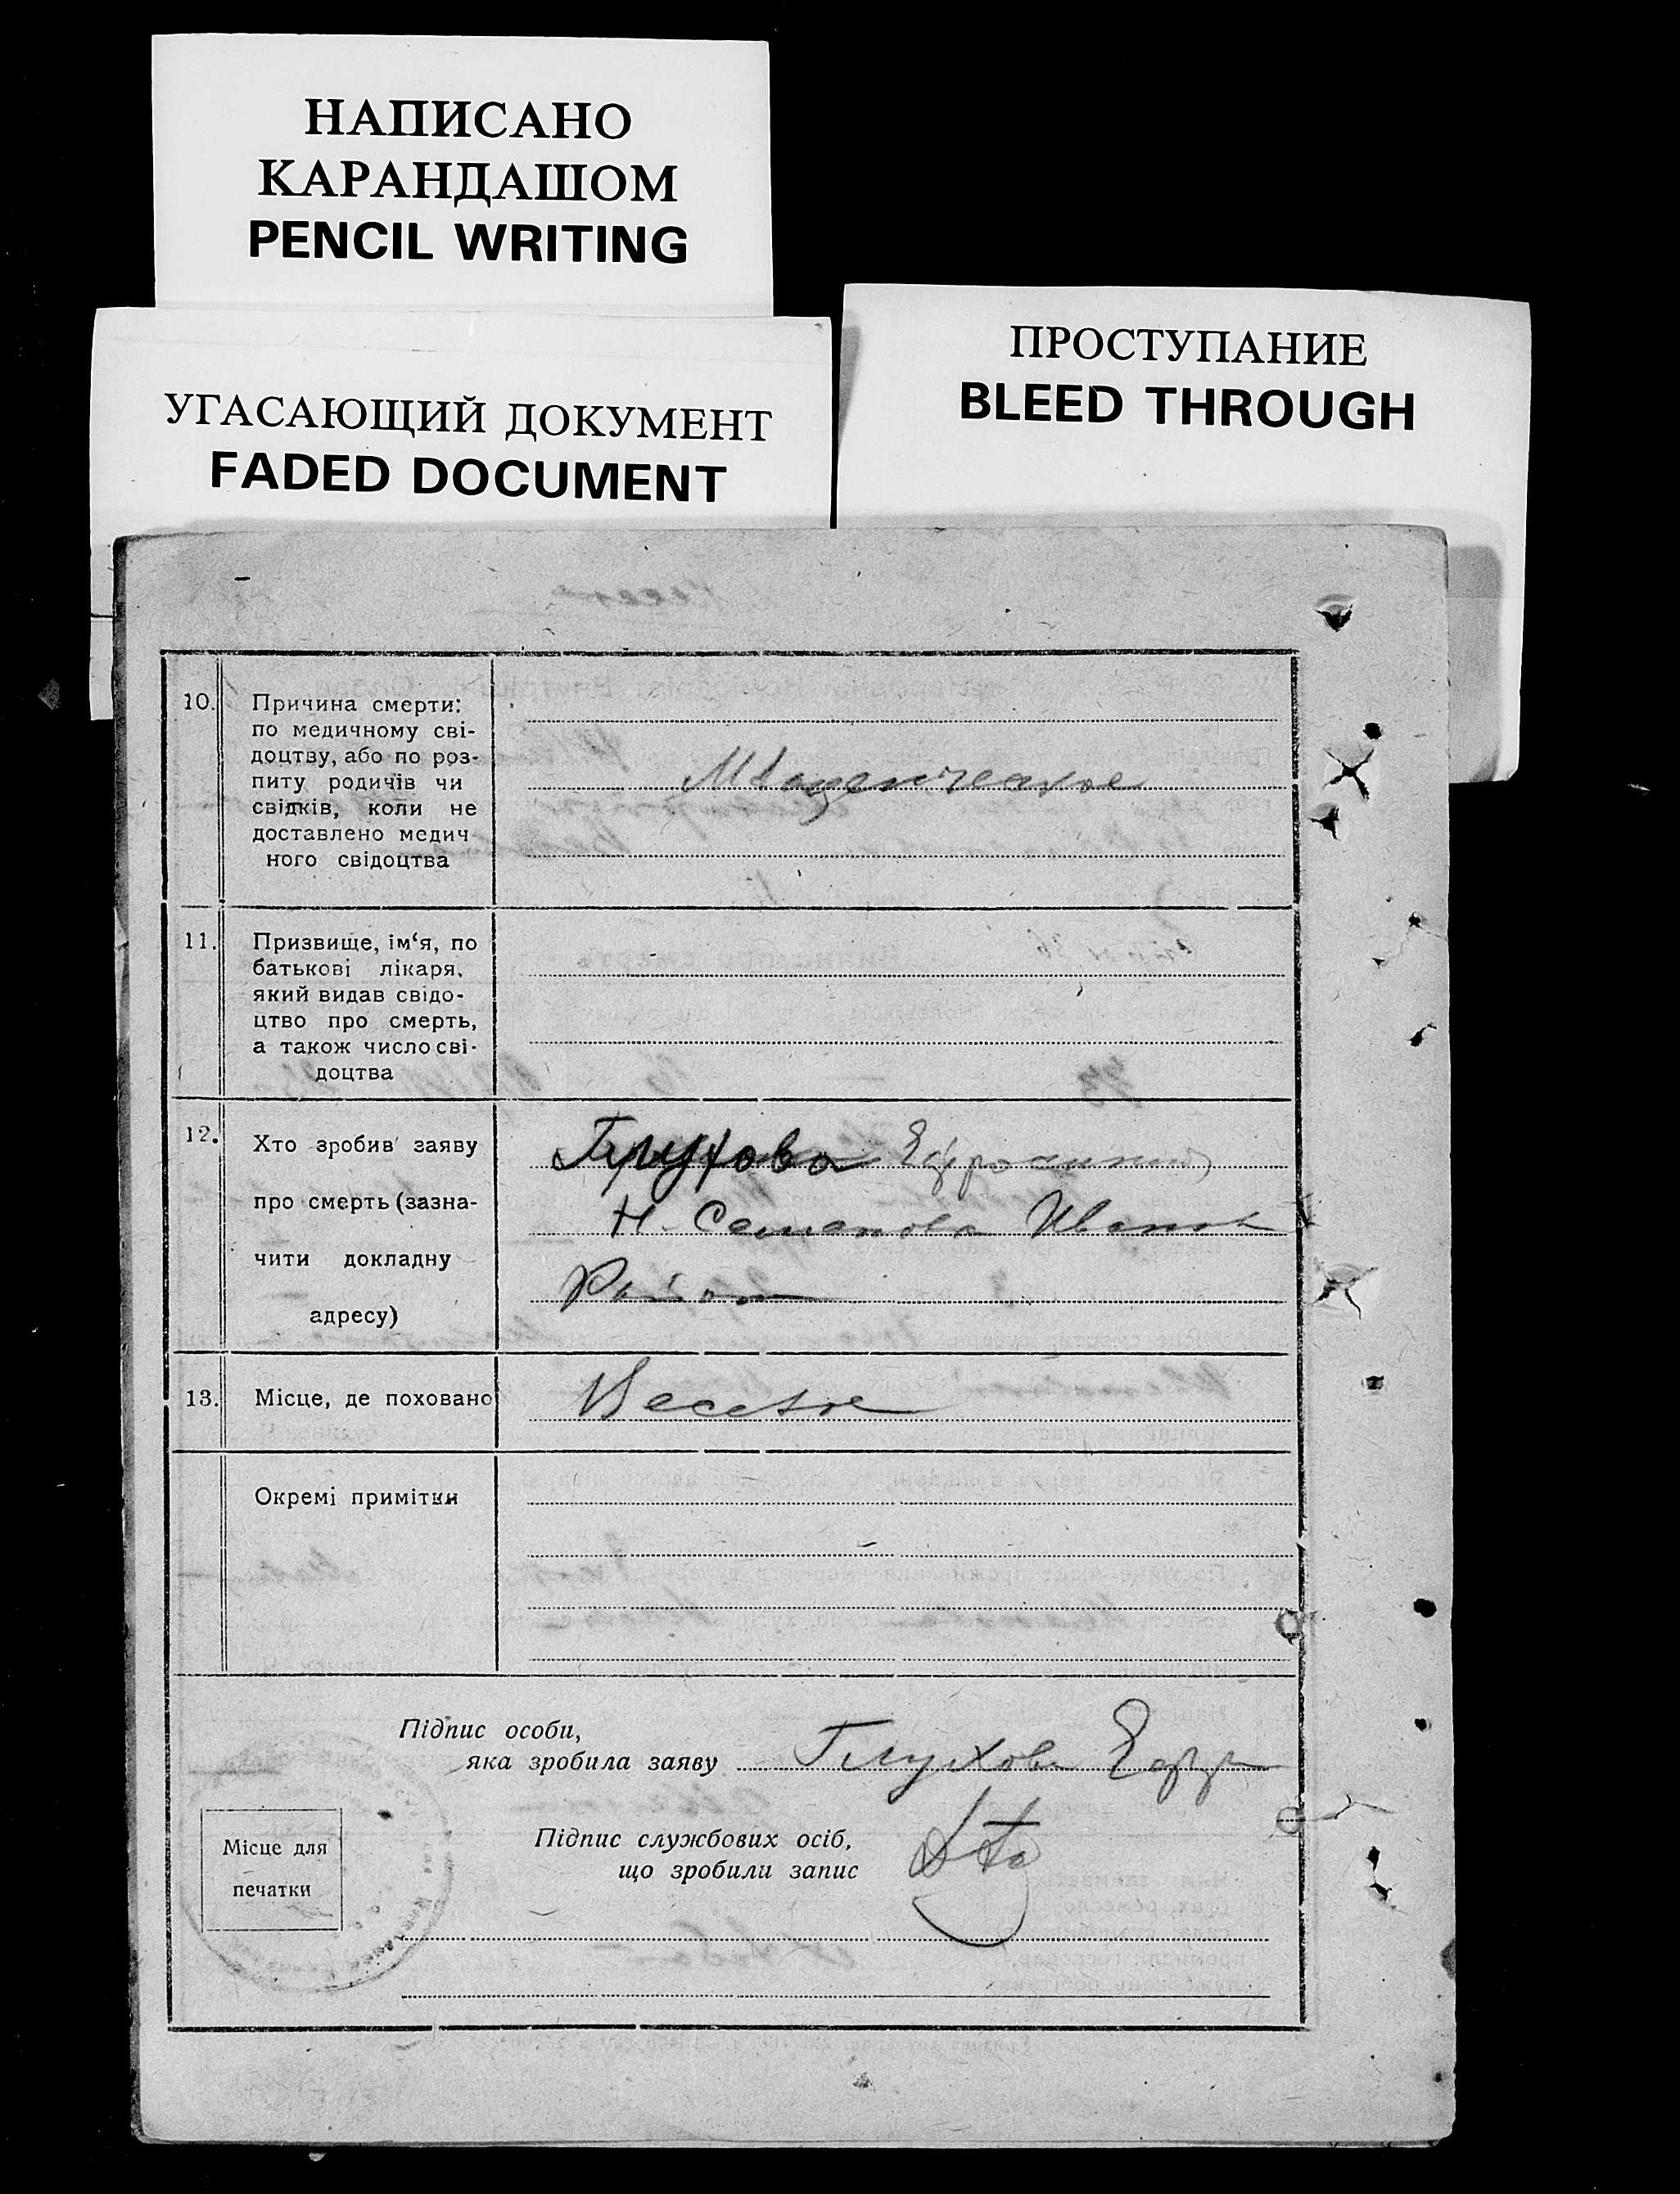 НАПИСАНО
КАРАНДАШОМ
PENCIL WRITING
УГАСАЮЩИЙ ДОКУМЕНТ
FADED DOCUMENT
ПРОСТУПАНИЕ
BLEED THROUGH
10. Причина смерти:
по медичному сві-
доцтву, або по роз-
питу родичів чи
свідків, коли не
доставлено медич
ного свідоцтва
11. Призвище, ім‘я, по
батькові лікаря,
який видав свідо-
цтво про смерть,
а також число сві-
доцтва
12. Хто зробив заяву
про смерть (зазна-
чити докладну
адресу)
Глухова
Н. Иванов
Район
13. Місце, де поховано
Веселое
Окремі примітки
Підпис особи,
яка зробила заяву Глухова Ефр
Підпис службових осіб,
що зробили запис
Місце для
печатки